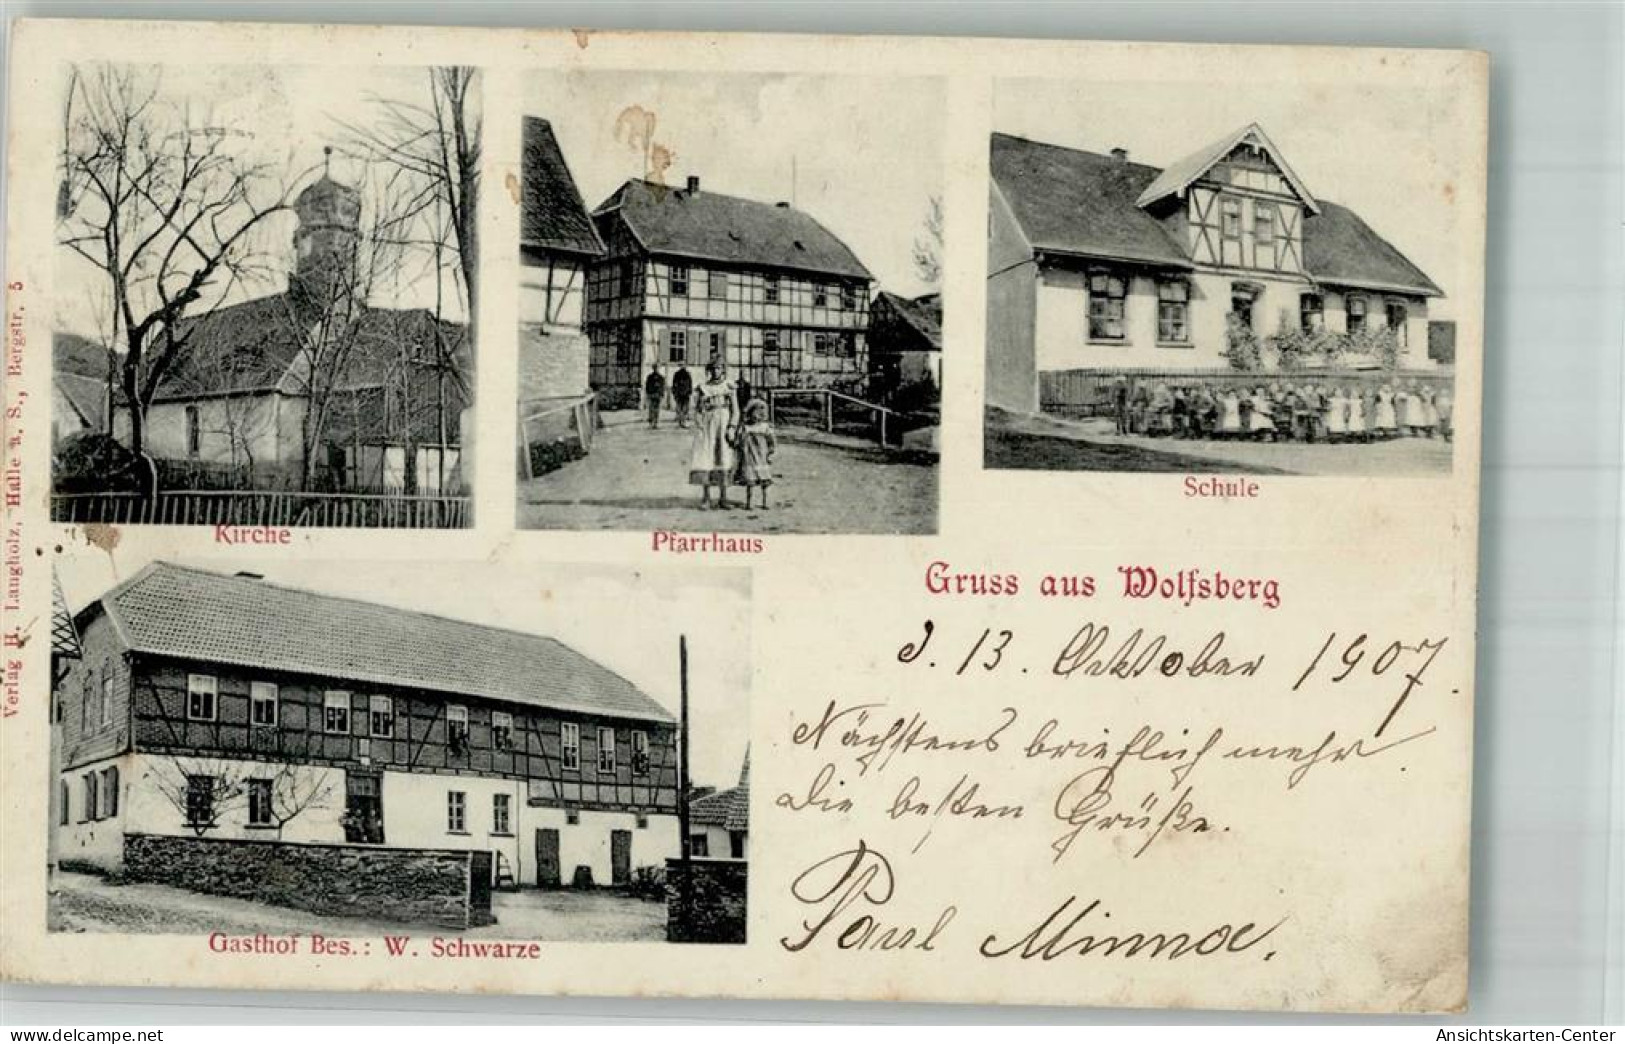 Kirche
Pfarrhaus
Schule
Gruss aus Wolfsberg
d. 13. Oktober 1907.
Nächstens brieflich mehr.
Die besten Grüße.
Paul Minna.
Gasthof Bes.: W. Schwarze
Verlag H. Langholz, Halle a. S., Bergstr. 5
Ansichtskarten-Center